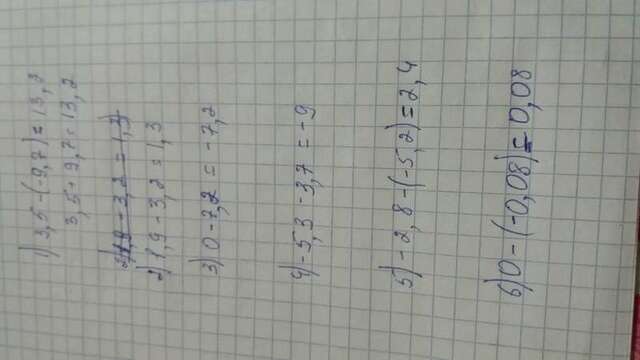 1) 3,5-(-9,7)=13,2
3,5+9,7=13,2
2) 1,9-3,2=1,3
2) 1,9-3,2=1,3
3) 0-7,2=-7,2
4) -5,3-3,7=-9
5) -2,8-(-5,2)=2,4
6) 0-(-0,08)=0,08